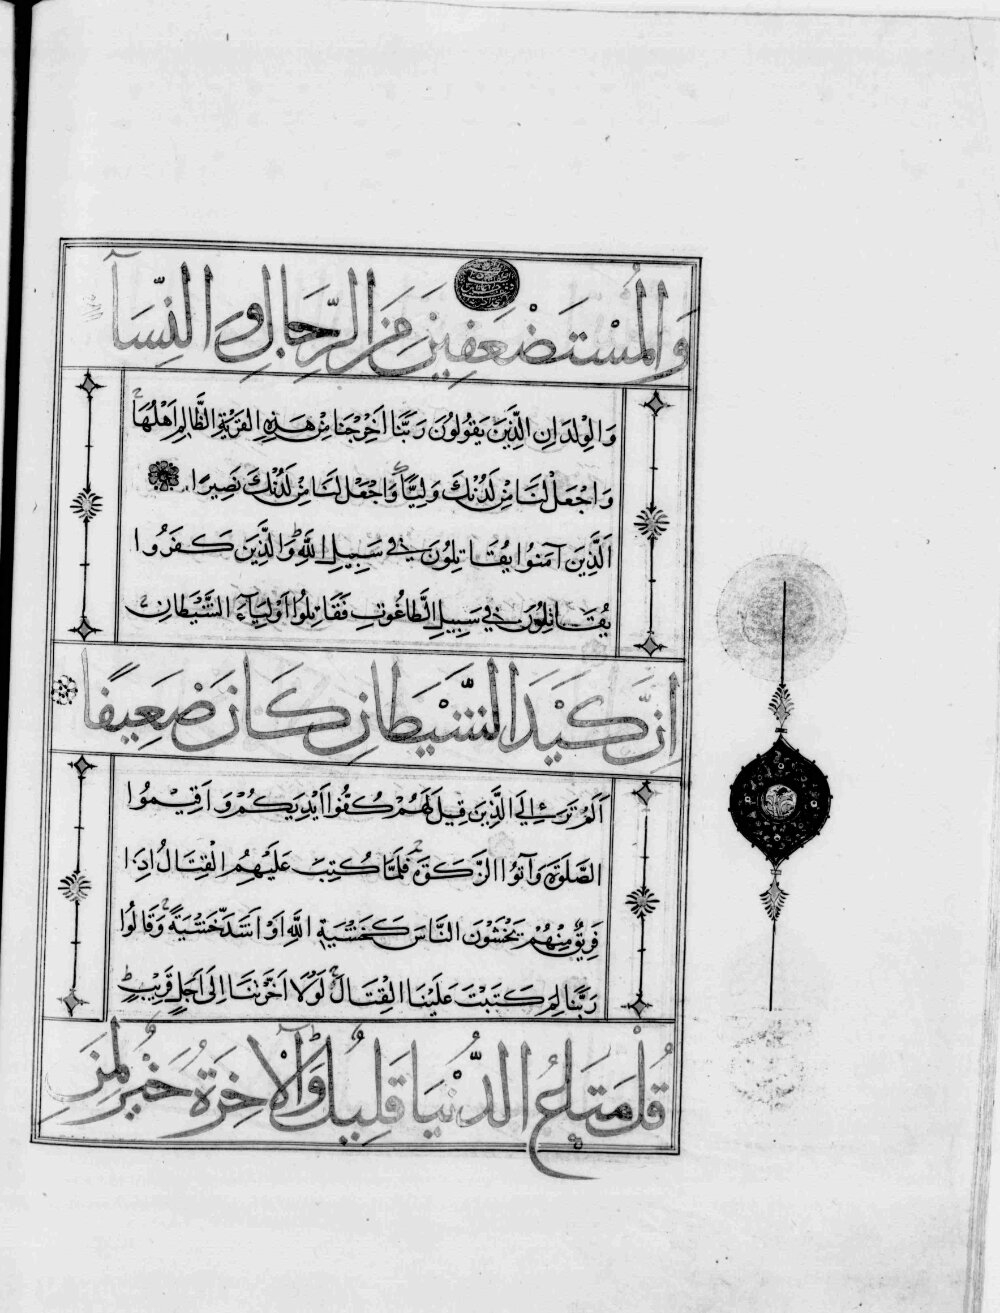 وَالْمُسْتَضْعَفِينَ مِنَ الرِّجَالِ وَالنِّسَآ
وَالْوِلْدَانِ الَّذِينَ يَقُولُونَ رَبَّنَا اَخْرِجْنَا مِنْ هَذِهِ الْقَرْيَةِ الظَّالِمِ اَهْلُهَا
وَاجْعَلْ لَنَا مِنْ لَدُنْكَ وَلِيًّا وَاجْعَلْ لَنَا مِنْ لَدُنْكَ نَصِيرًا
اَلَّذِينَ آمَنُوا يُقَاتِلُونَ فِي سَبِيلِ اللَّهِ وَالَّذِينَ كَفَرُوا
يُقَاتِلُونَ فِي سَبِيلِ الطَّاغُوتِ فَقَاتِلُوا اَوْلِيَآءَ الشَّيْطَانِ
اِنَّ كَيْدَ الشَّيْطَانِ كَانَ ضَعِيفًا
اَلَمْ تَرَ اِلَي الَّذِينَ قِيلَ لَهُمْ كُفُّوا اَيْدِيَكُمْ وَاَقِيمُوا
الصَّلَوةَ وَآتُوا الزَّكَوةَ فَلَمَّا كُتِبَ عَلَيْهِمُ الْقِتَالُ اِذَا
فَرِيقٌ مِنْهُمْ يَخْشَوْنَ النَّاسَ كَخَشْيَةِ اللَّهِ اَوْ اَشَدَّ خَشْيَةً وَقَالُوا
رَبَّنَا لِمَ كَتَبْتَ عَلَيْنَا الْقِتَالَ لَوْلَا اَخَّرْتَنَا اِلَى اَجَلٍ قَرِيبٍ
قُلْ مَتَاعُ الدُّنْيَا قَلِيلٌ وَالْآخِرَةُ خَيْرٌ لِمَنِ